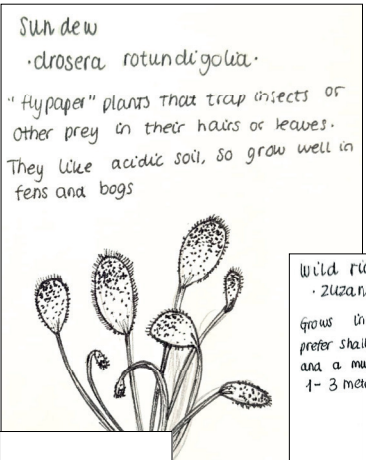 Sundew
·drosera rotundigolia·
"flypaper" plants that trap insects or
other prey in their hairs or leaves.
They like acidic soil, so grow well in
fens and bogs
Wild
· zuzan
Grows in
prefer shall
and a mu
1-3 met